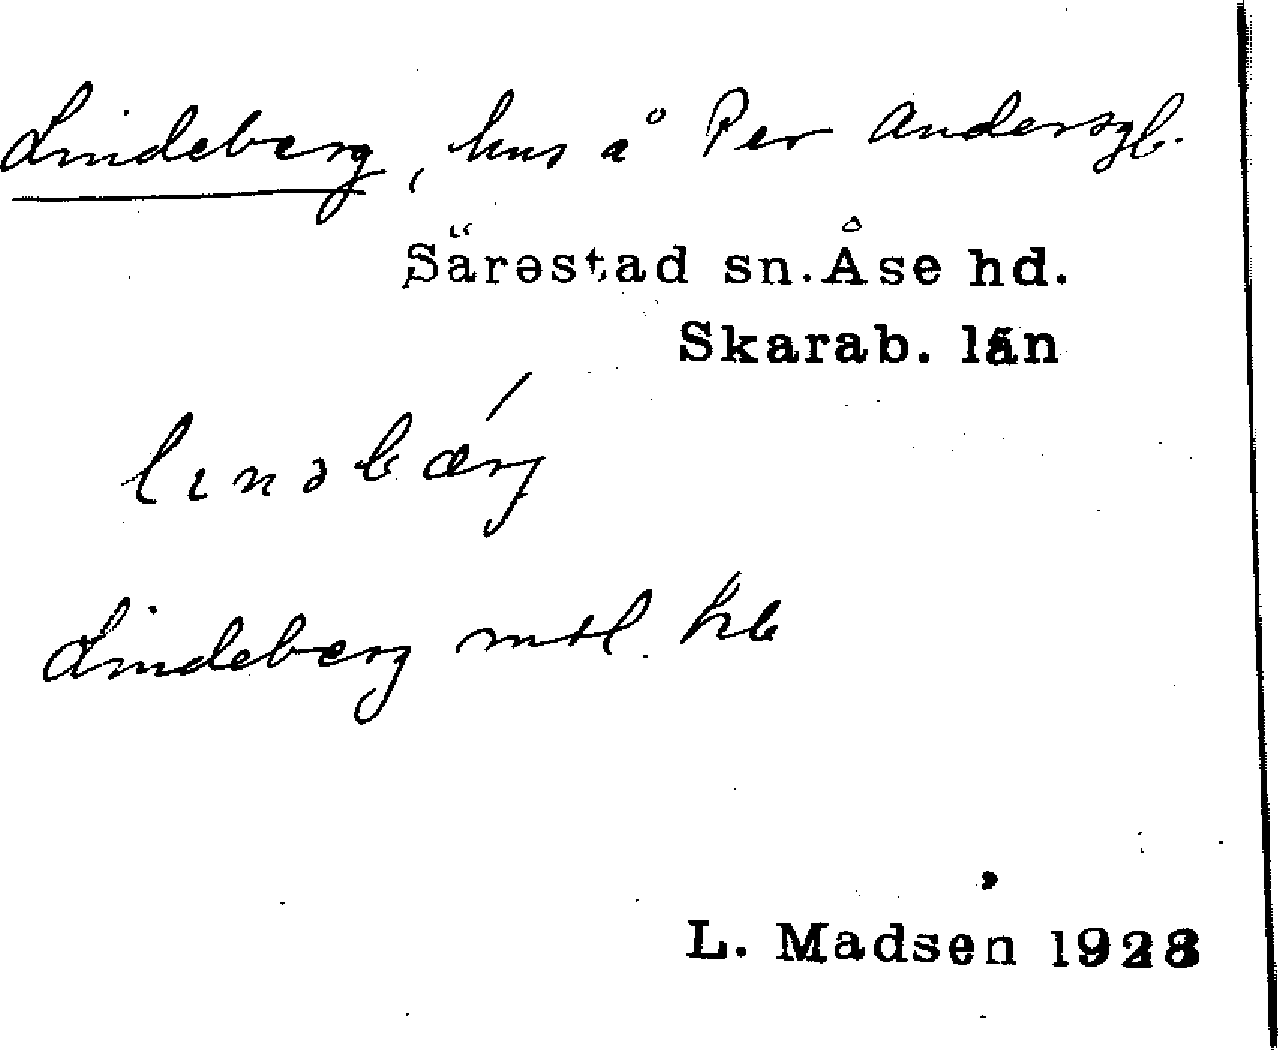 Lindeberg, hus å Per Andersgb.
Särestad sn. Åse hd.
Skarab. län
lɩnəbærj
Lindeberg mtl. hb
L. Madsen 1928